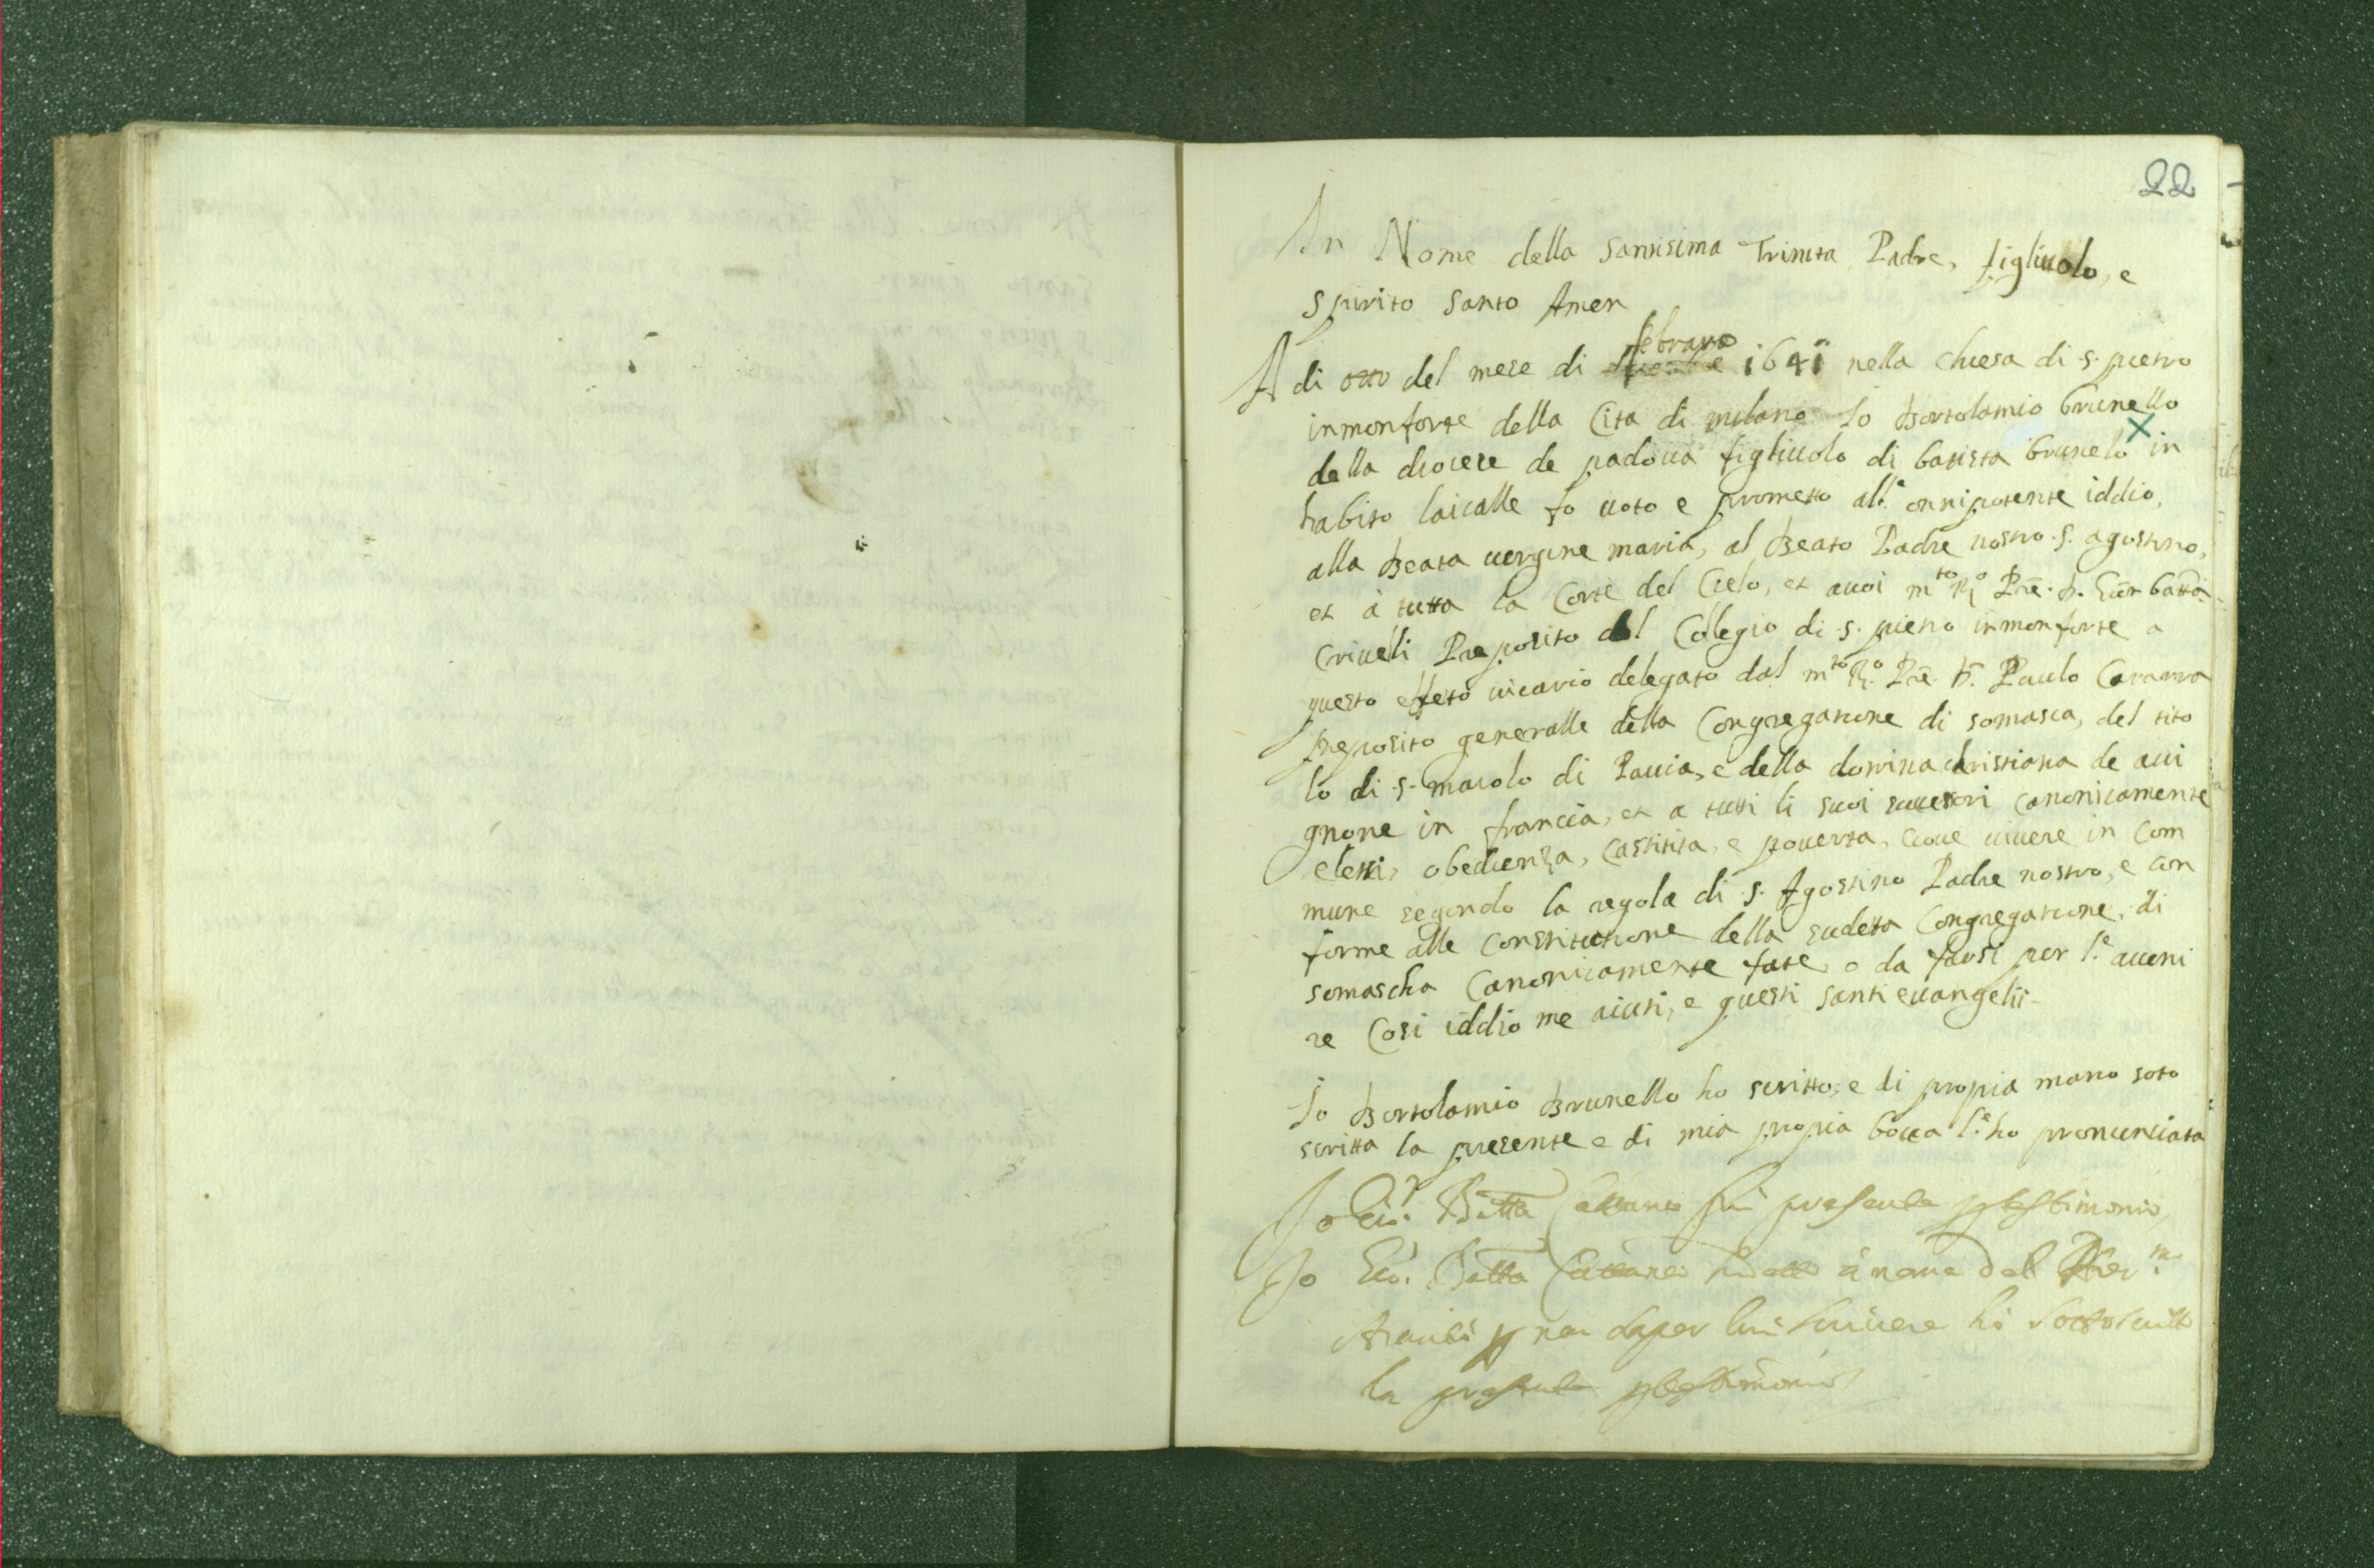 22
In Nome della santisima Trinita Padre, figliuolo, e
spirito santo Amen
febraro
A di otto del mese di 1641 nella chiesa di s. pietro
inmonforte della Cita di milano Io Bortolamio brunello
della diocese de padoua figliuolo di batista brunelo in
habito laicalle fo uoto e prometto all.e onnipotente iddio,
alla Beata uergine maria, al Beato Padre nostro s. agostino,
et à tutta la Corte del Cielo, et auoi m.to R.o Prē. D. Giōn batta
Criueli Preposito del Collegio di s. pietro inmonforte a
questo effeto uicario delegato dal m.to R.o Prē. D. Paulo Cararra
preposito generalle della Congregatione di somasca, del tito
lo di s. maiolo di Pauia, e della dotrina christiana de aui
gnone in francia, et a tutti li suoi sucesori canonicamente
eletti, obedienza, castitita, e pouerta, cioue uiuere in com
mune segondo la regola di s. Agostino Padre nostro, e con
forme alle constitutione della sudetta Congregatione, di
somascha Canonicamente fate, o da farsi per l.e aueni
re Cosi iddio me aiuti, e questi santi euangelii
Io Bortolamio Brunello ho scritto, e di propia mano soto
scritta la presente e di mia propia bocca l.e ho pronunciata
Io Gio. Batta Cattaneo fui presente p testimonio
Io Gio. Batta Cattaneo à nome del
p non saper lui scriuere hò sottoscritto
la presente p testimonio